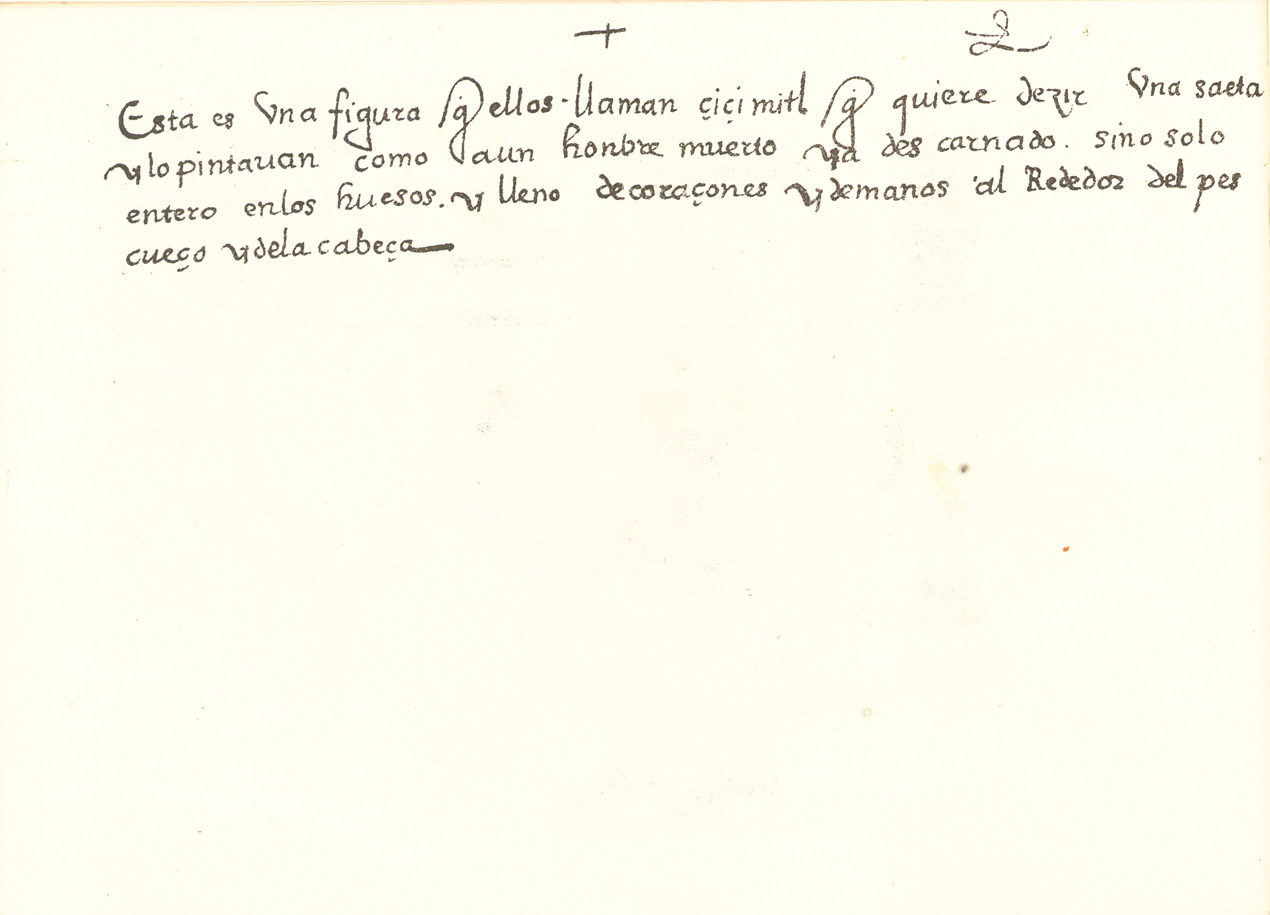 + 2
Esta es Vna figura q̃ ellos·llaman çiçimitl q̃ quiere dezir Vna saeta
y lo pintauan como aun honbre muerto ya des carnado. sino solo
entero enlos huesos. y lleno decoraçones y demanos al Rededor del pes
cueço y dela cabeça